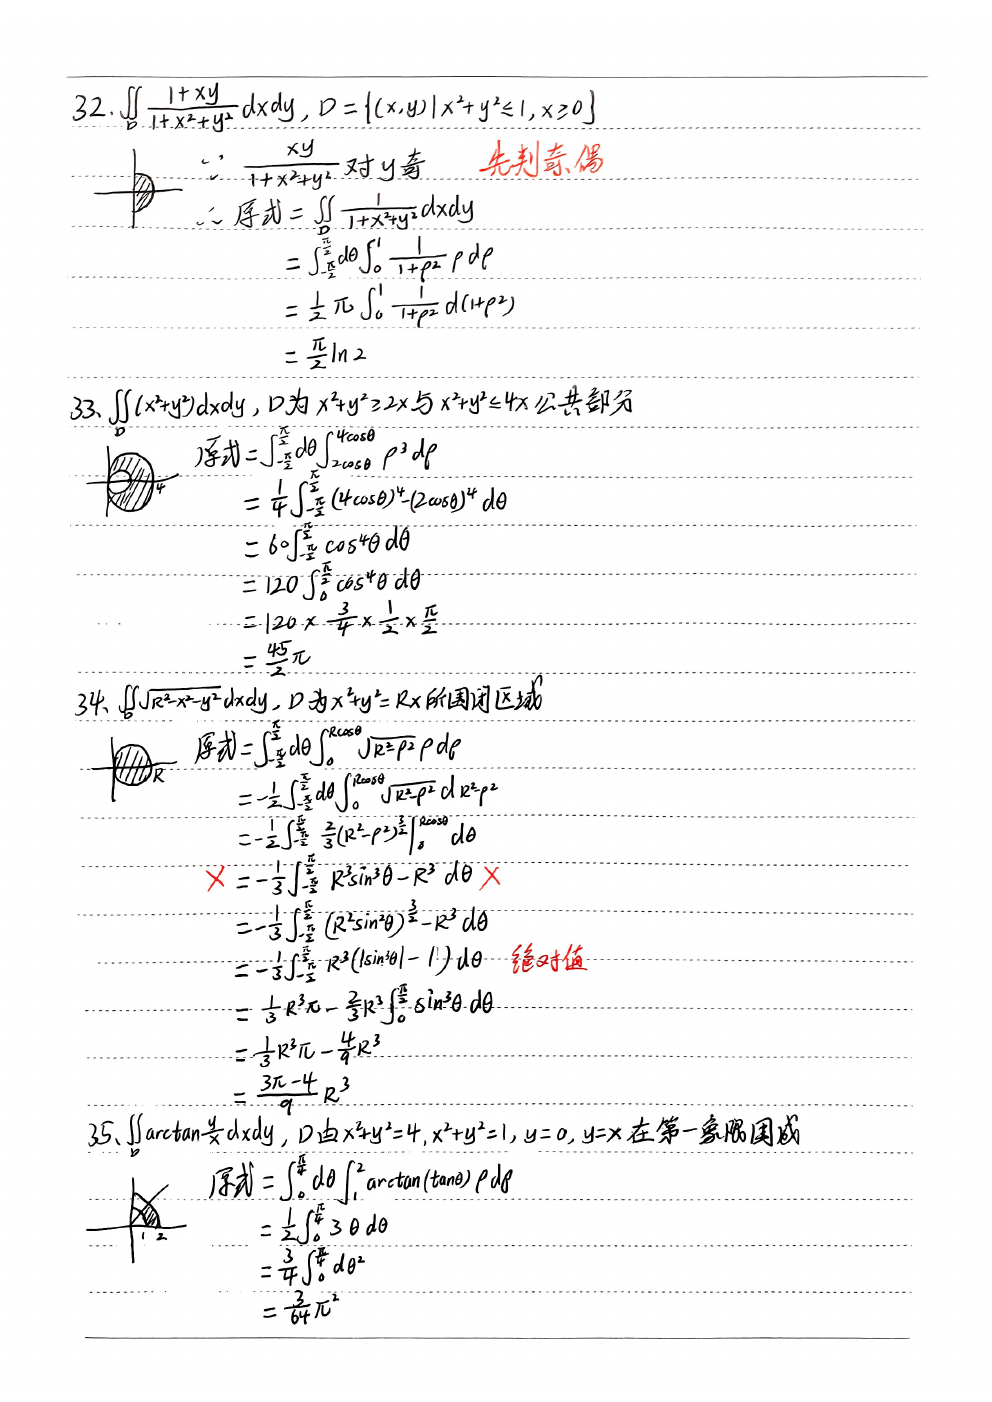 32. ∬_D (1+xy)/(1+x²+y²) dxdy, D={(x,y)|x²+y²≤1, x≥0}
∵ xy/(1+x²+y²) 对y奇 先判奇偶
∴ 原式 = ∬_D 1/(1+x²+y²) dxdy
= ∫_{-π/2}^{π/2} dθ ∫_0^1 1/(1+ρ²) ρdρ
= 1/2 π ∫_0^1 1/(1+ρ²) d(1+ρ²)
= π/2 ln2
33、∬_D (x²+y²)dxdy, D为 x²+y²≥2x与x²+y²≤4x公共部分
原式 = ∫_{-π/2}^{π/2} dθ ∫_{2cosθ}^{4cosθ} ρ³dρ
4
= 1/4 ∫_{-π/2}^{π/2} (4cosθ)⁴-(2cosθ)⁴ dθ
= 60∫_{-π/2}^{π/2} cos⁴θ dθ
= 120 ∫_0^{π/2} cos⁴θ dθ
= 120 × 3/4 × 1/2 × π/2
= 45/2 π
34、∬_D √(R²-x²-y²) dxdy, D为x²+y²=Rx所围闭区域
原式 = ∫_{-π/2}^{π/2} dθ ∫_0^{Rcosθ} √(R²-ρ²) ρdρ
R
= -1/2 ∫_{-π/2}^{π/2} dθ ∫_0^{Rcosθ} √(R²-ρ²) d R²-ρ²
= -1/2 ∫_{-π/2}^{π/2} 2/3 (R²-ρ²)^{3/2} |_0^{Rcosθ} dθ
× = -1/3 ∫_{-π/2}^{π/2} R³sin³θ - R³ dθ ×
= -1/3 ∫_{-π/2}^{π/2} (R²sin²θ)^{3/2} - R³ dθ
= -1/3 ∫_{-π/2}^{π/2} R³(|sin³θ| - 1) dθ 绝对值
= 1/3 R³π - 2/3 R³ ∫_0^{π/2} sin³θ dθ
= 1/3 R³π - 4/9 R³
= (3π-4)/9 R³
35、∬_D arctan y/x dxdy, D由x²+y²=4, x²+y²=1, y=0, y=x 在第一象限围成
原式 = ∫_0^{π/4} dθ ∫_1^2 arctan(tanθ) ρdρ
1 2
= 1/2 ∫_0^{π/4} 3θ dθ
= 3/4 ∫_0^{π/4} dθ²
= 3/64 π²